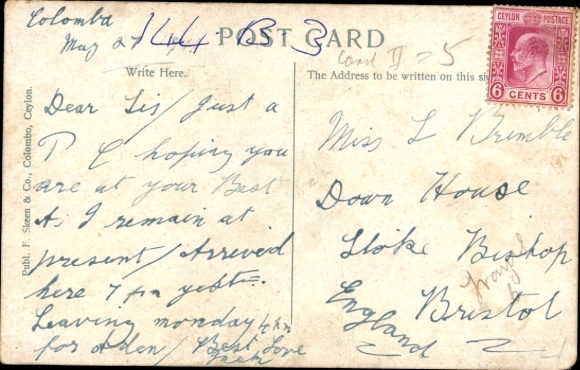 Colombo
May 27
144 B 3
POST CARD
Card II = 5
CEYLON POSTAGE
6 CENTS 6
Write Here.
The Address to be written on this si
Dear Sis / Just a
P C hoping you
are at your Best
As I remain at
present / Arrived
here 7 pm yest=.
Leaving monday 4 pm
for Aden / Best Love
Jack
Miss L Brimble
Down House
Stoke Bishop
Bristol
England
Publ. F. Skeen & Co., Colombo, Ceylon.